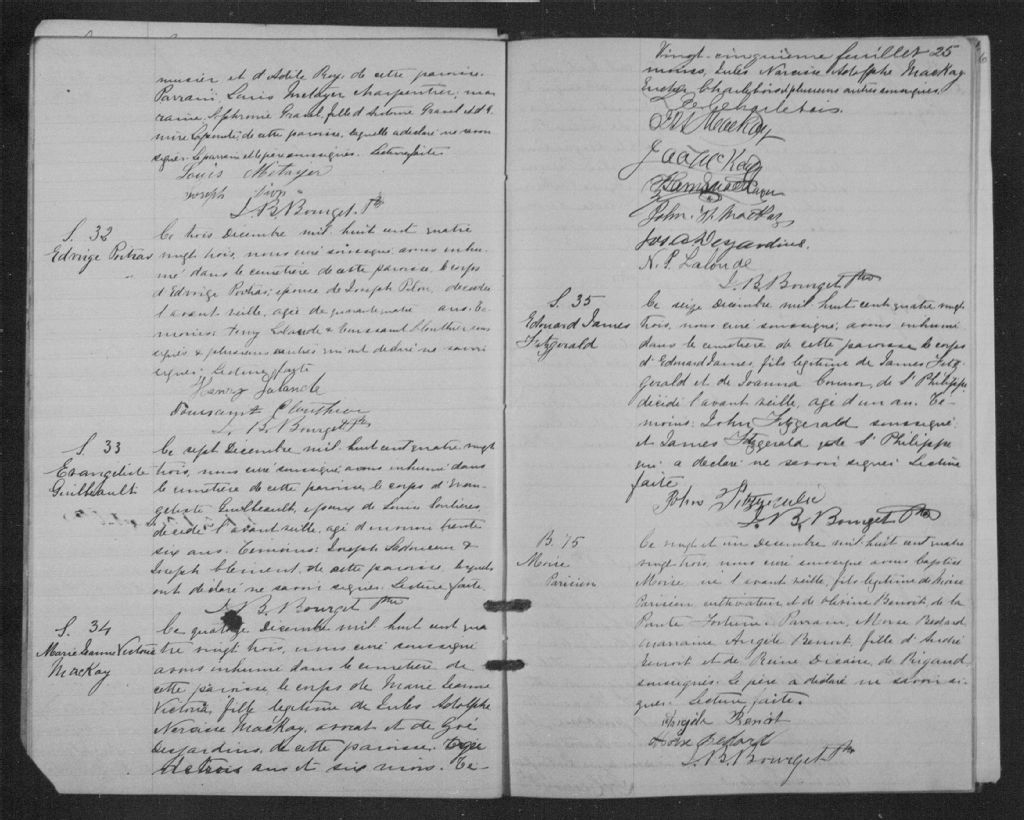 nuisier et d'Adèle Roy, de cette paroisse.
Parrain, Louis Metayer charpentier, mar
raine Sophronie Gravel, fille d'Antoine Gravel et d'E
de cette paroisse, laquelle a déclaré ne savoir
signer. Le parrain et le père soussignés. Lecture faite
Louis Metayer
Joseph
J. B. Bourget Ptre
S. 32
Edvige Poitras
Ce trois Décembre mil huit cent quatre
vingt trois, nous curé soussigné avons inhu
mé dans le cimetière de cette paroisse, le corps
d'Edvige Poitras, épouse de Joseph Pilon, décédée
l'avant veille, agée de quarante ans. Té
moins: Henry Lalande & Toussaint Clouthier sous
signés & plusieurs autres qui ont déclaré ne savoir
signer. Lecture faite
Henry Lalande
Toussaint Clouthier
J. B. Bourget Ptre
S. 33
Evangeliste
Guilbeault
Ce sept Décembre mil huit cent quatre vingt
trois, nous curé soussigné avons inhumé dans
le cimetière de cette paroisse, le corps d'Evan
geliste Guilbeault, époux de Louise
décédé l'avant veille, agé d'environ trente
six ans. Témoins: Joseph &
Joseph Clement, de cette paroisse, lesquels
ont déclaré ne savoir signer. Lecture faite.
J. B. Bourget Ptre
S. 34
Marie Jeanne Victoria
MacKay
Ce quatorze Décembre mil huit cent qua
tre vingt trois, nous curé soussigné
avons inhumé dans le cimetière de
cette paroisse, le corps de Marie Jeanne
Victoria, fille legitime de Jules Adolphe
Narcisse MacKay, avocat et de Zoé
Desjardins, de cette paroisse, agée
de trois ans et six mois. Té-
Vingt-cinquième feuillet 25
moins, Jules Narcisse Adolphe MacKay
Eusèbe Charlebois & plusieurs autres soussignés.
E. Charlebois
MacKay
MacKay
John MacKay
Jos A Desjardins
N. P. Lalonde
J. B. Bourget Ptre
S. 35
Edouard James
Fitzgerald
Ce seize Décembre mil huit cent quatre vingt
trois, nous curé soussigné, avons inhumé
dans le cimetière de cette paroisse le corps
d'Edouard James, fils legitime de James Fitz
Gerald et de Joanna Connor, de St Philippe
décédé l'avant veille, agé d'un an. Té
moins: John Fitzgerald soussigné
et James Fitzgerald de St Philippe
qui a déclaré ne savoir signer. Lecture
faite
John
J. B. Bourget Ptre
B. 75
Moise
Parisien
Ce vingt et un Décembre mil huit cent quatre
vingt trois, nous curé soussigné avons baptisé
Moise, né l'avant veille, fils legitime de Moise
Parisien cultivateur et de Olivine Benoit de la
Pointe Fortune. Parrain, Moise Bedard
marraine Angèle Benoit, fille d'André
Benoit et de Reine Dicaire, de Rigaud
soussignés. Le père a déclaré ne savoir si-
gner. Lecture faite.
Angèle Benoit
Moise Bedard
J. B. Bourget Ptre